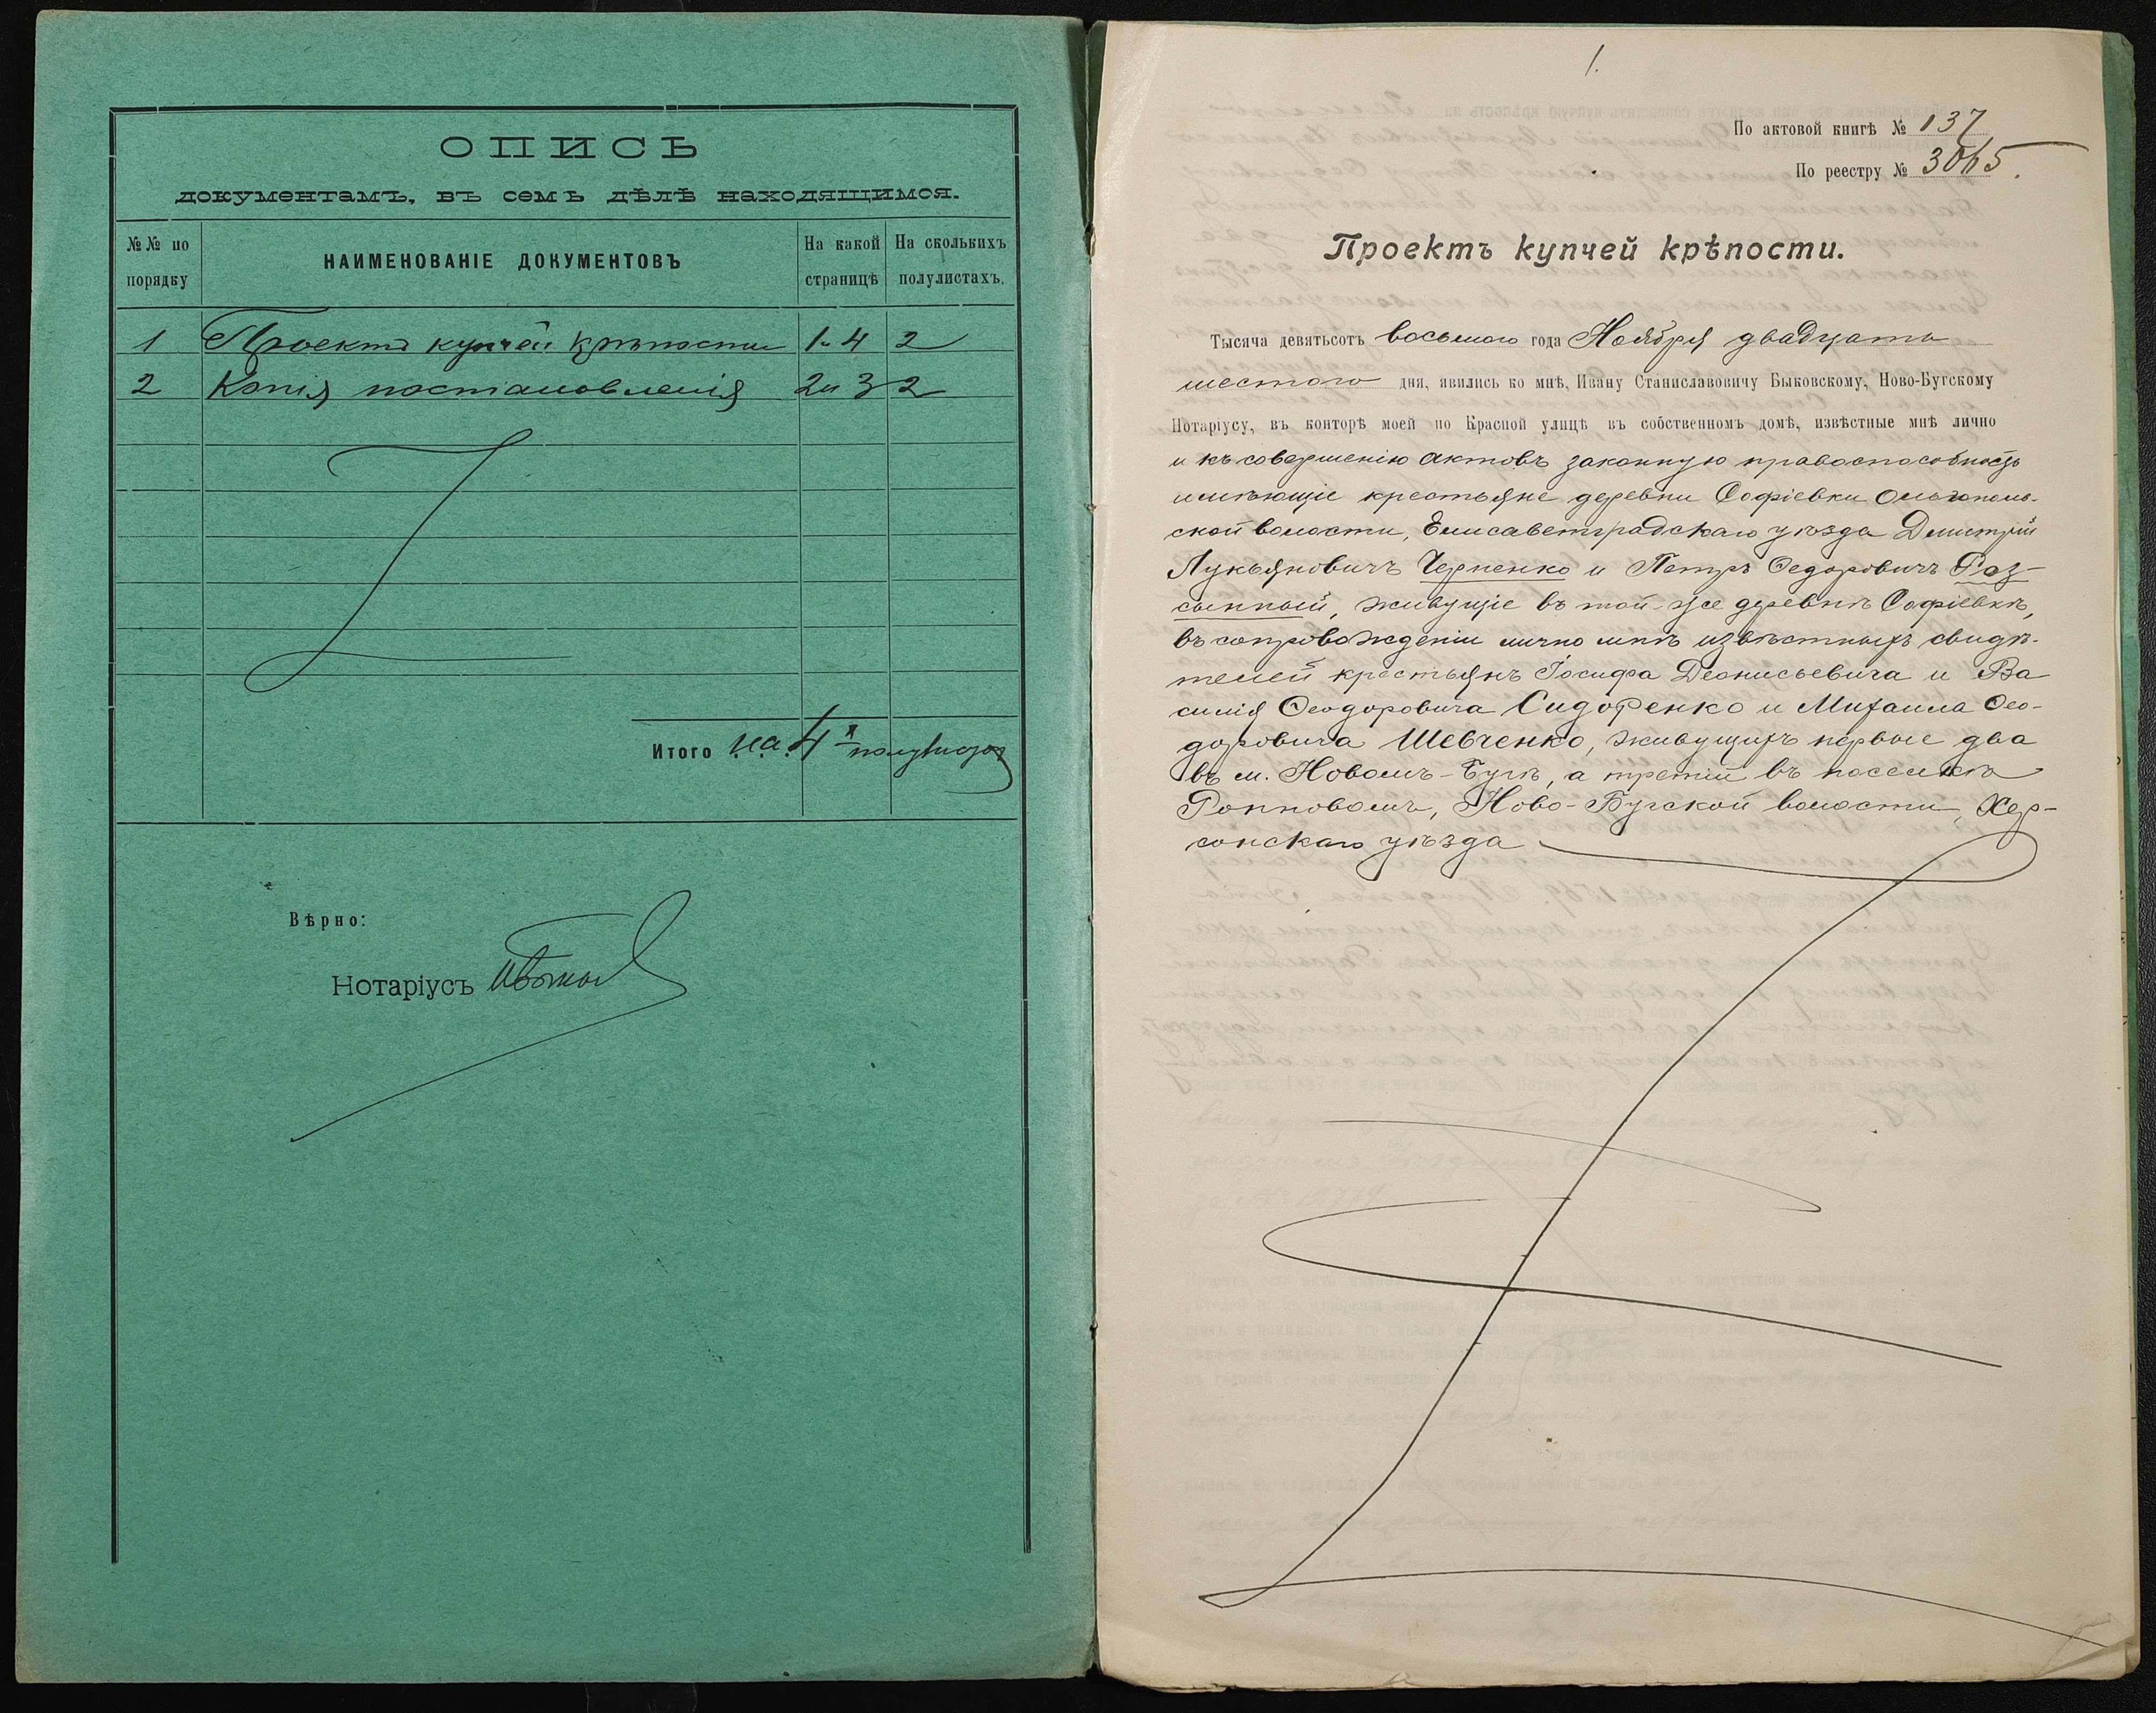 ОПИСЬ
документамъ, въ семъ дѣлѣ находящимся.
№№ по порядку
НАИМЕНОВАНІЕ ДОКУМЕНТОВЪ
На какой страницѣ
На сколькихъ полулистахъ.
1 Проектъ купчей крѣпости 1-4 2
2 Копія постановленія 2и3 2
Итого на 4х полулистах
Вѣрно:
Нотаріусъ
1.
По актовой книгѣ № 137
По реестру № 3065.
Проектъ купчей крѣпости.
Тысяча девятьсотъ восьмого года Ноября двадцать
шестого дня, явились ко мнѣ, Ивану Станиславовичу Быковскому, Ново-Бугскому
Нотаріусу, въ конторѣ моей по Красной улицѣ въ собственномъ домѣ, извѣстные мнѣ лично
и къ совершенію актовъ законную правоспособность
имѣющіе крестьяне деревни Софіевки Ольгополь-
ской волости, Елисаветградскаго уѣзда Дмитрій
Лукьяновичъ Черненко и Петръ Ѳедоровичъ Роз-
сыпной, живущіе въ той-же деревнѣ Софіевкѣ,
въ сопровожденіи лично мнѣ извѣстныхъ свидѣ-
телей крестьянъ Іосифа Деонисьевича и Ва
силія Ѳеодоровича Сидоренко и Михаила Ѳео-
доровича Шевченко, живущихъ первые два
въ м. Новомъ-Бугѣ, а третій въ поселкѣ
Ново-Бугской волости, Хер-
сонскаго уѣзда